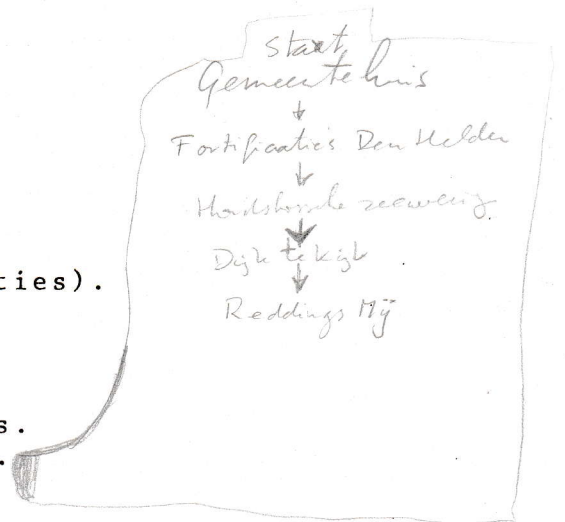 Start
Gemeentehuis
↓
Fortificaties Den Helder
↓
Hondsbossche zeewering
↓
Dijk te kijk
↓
Reddings Mij
ties).
s.
.